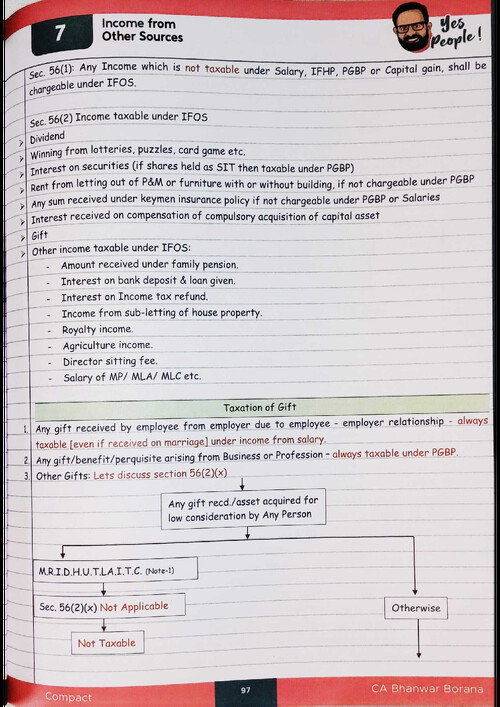 7
Income from
Other Sources
Yes
People!
Sec. 56(1): Any Income which is not taxable under Salary, IFHP, PGBP or Capital gain, shall be
chargeable under IFOS.
Sec. 56(2) Income taxable under IFOS
➢ Dividend
➢ Winning from lotteries, puzzles, card game etc.
➢ Interest on securities (if shares held as SIT then taxable under PGBP)
➢ Rent from letting out of P&M or furniture with or without building, if not chargeable under PGBP
➢ Any sum received under keymen insurance policy if not chargeable under PGBP or Salaries
➢ Interest received on compensation of compulsory acquisition of capital asset
➢ Gift
➢ Other income taxable under IFOS:
- Amount received under family pension.
- Interest on bank deposit & loan given.
- Interest on Income tax refund.
- Income from sub-letting of house property.
- Royalty income.
- Agriculture income.
- Director sitting fee.
- Salary of MP/ MLA/ MLC etc.
Taxation of Gift
1. Any gift received by employee from employer due to employee - employer relationship - always
taxable [even if received on marriage] under income from salary.
2. Any gift/benefit/perquisite arising from Business or Profession - always taxable under PGBP.
3. Other Gifts: Lets discuss section 56(2)(x)
Any gift recd./asset acquired for
low consideration by Any Person
M.R.I.D.H.U.T.L.A.I.T.C. (Note-1)
Sec. 56(2)(x) Not Applicable
Otherwise
Not Taxable
Compact
97
CA Bhanwar Borana